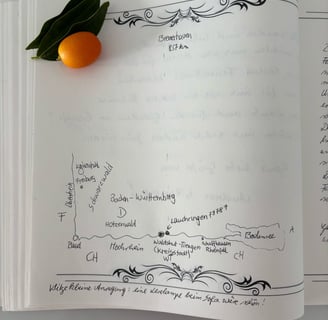 Bremerhaven
817 km
Frankreich
Universität
Freiburg
Schwarzwald
Baden-Württemberg
F
D
Hotzenwald
Lauchringen
Bodensee
A
Basel
Hochrhein
Waldshut-Tiengen
(Kreisstadt)
WT
Schaffhausen
Rheinfall
CH
CH
kleine Anregung: eine Leselampe beim Sofa wäre schön!